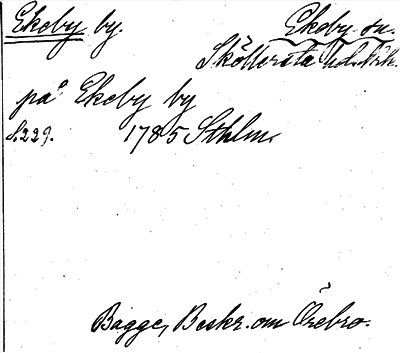 Ekeby by.
Ekeby sn.
Sköllersta hd. Nrk.
på Ekeby by
S. 229. 1785 Sthlm.
Bagge, Beskr. om Örebro.